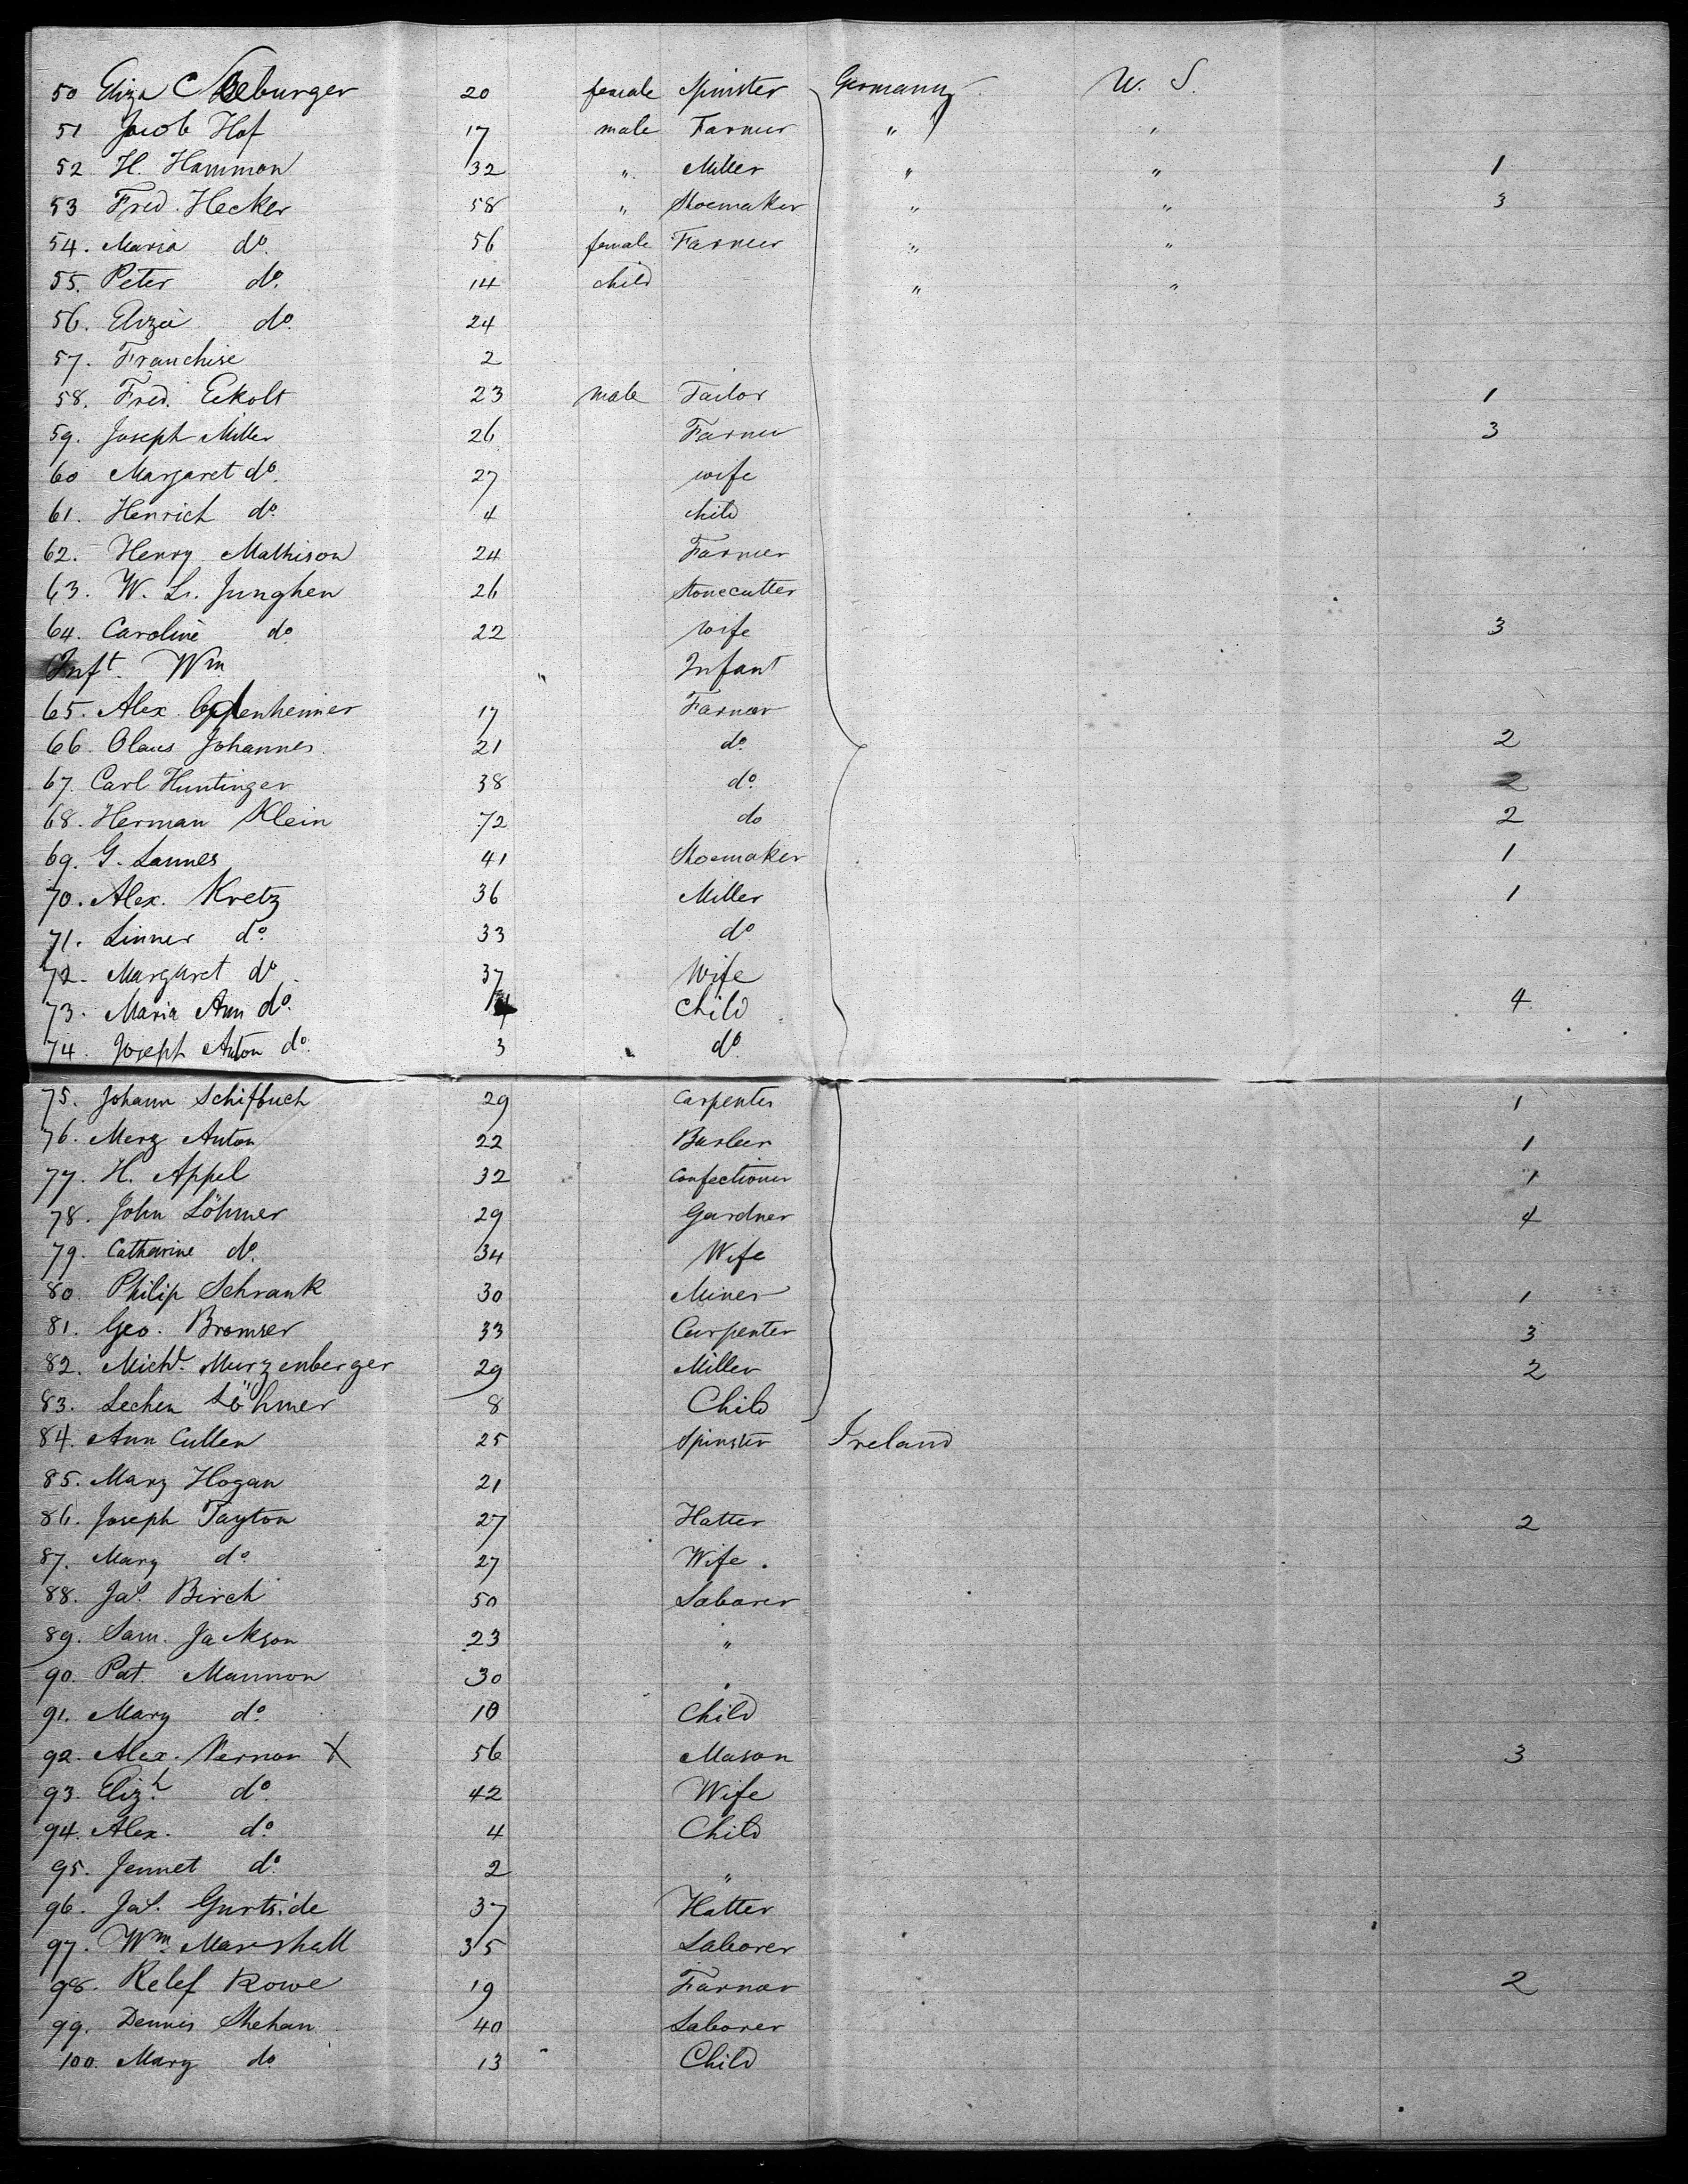 50 Eliza C Seeburger 20 female Spinster Germany U. S.
51 Jacob Hof 17 male Farmer " "
52 H. Hammon 32 " Miller " " 1
53 Fred. Hecker 58 " Shoemaker " " 3
54. Maria do. 56 female Farmer " "
55. Peter do. 14 child " "
56. Eliza do. 24
57. Franchise 2
58. Fred. Eckolt 23 male Tailor 1
59. Joseph Miller 26 Farmer 3
60 Margaret do. 27 wife
61. Henrich do. 4 child
62. Henry Mathison 24 Farmer
63. W. L. Junghen 26 Stonecutter
64. Caroline do. 22 wife 3
Inft. Wm " Infant
65. Alex. Oppenheimer 17 Farmer
66. Olaus Johannes 21 do. 2
67. Carl Huntinger 38 do. 2
68. Herman Klein 72 do 2
69. G. Lannes 41 Shoemaker 1
70. Alex. Kretz 36 Miller 1
71. Linner do. 33 do
72. Margaret do. 37 Wife
73. Maria Ann do. Child 4
74. Joseph Anton do. 3 do.
75. Johann Schifbuch 29 Carpenter 1
76. Merz Anton 22 1
77. H. Appel 32 Confectioner 1
78. John Löhmer 29 Gardner 4
79. Catharine do. 34 Wife
80. Philip Schrank 30 Miner 1
81. Geo. Bromser 33 Carpenter 3
82. Michl. Murzenberger 29 Miller 2
83. Lechen Löhmer 8 Child
84. Ann Cullen 25 Spinster Ireland
85. Mary Hogan 21
86. Joseph Tayton 27 Hatter 2
87. Mary do. 27 Wife.
88. Jas. Birch 50 Laborer
89. Sam. Jackson 23 "
90. Pat. Mannon 30 "
91. Mary do. 10 Child
92. Alex. Vernon X 56 Mason 3
93. Elizh. do. 42 Wife
94. Alex. do. 4 Child
95. Jennet do. 2 "
96. Jas. Gurtside 37 Hatter
97. Wm. Marshall 35 Laborer
98. Relef Rowe 19 Farmer 2
99. Dennis Shehan 40 Laborer
100. Mary do 13 Child